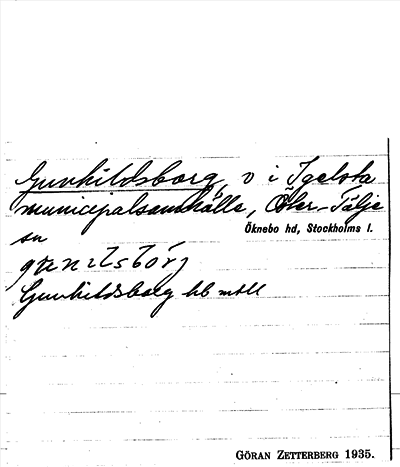 Gunhildsborg, v i Igelsta
municipalsamhälle, Över-Tälje
sn
Öknebo hd, Stockholms l.
Gunhildsborg hb mtll
GÖRAN ZETTERBERG 1935.